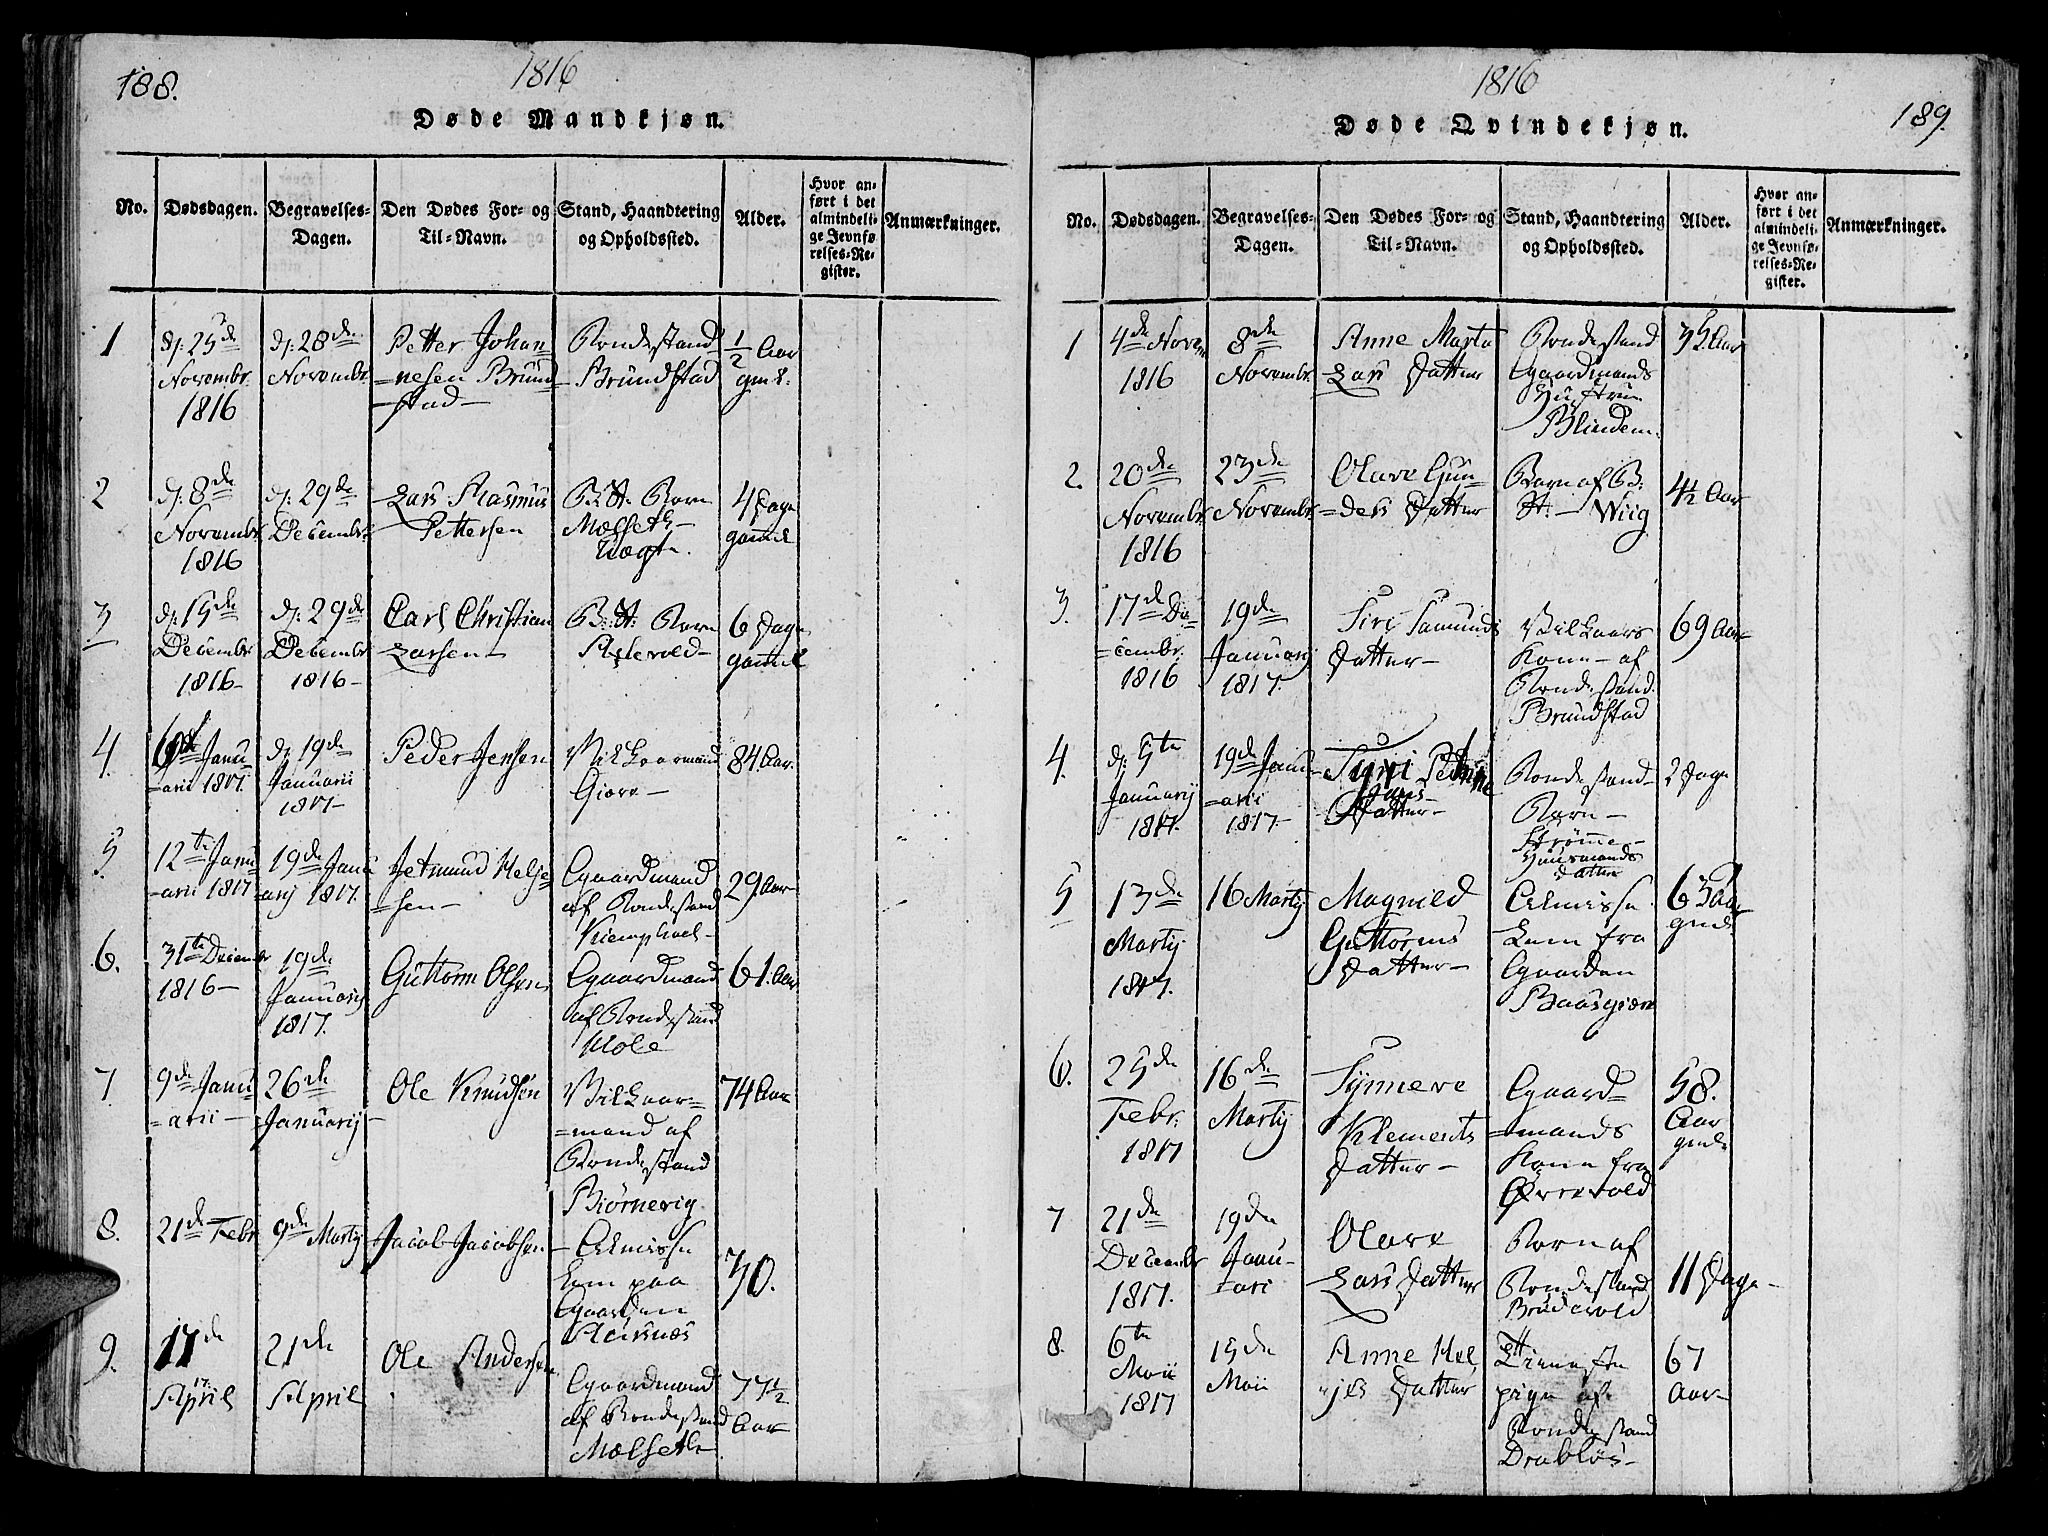 188.
1816
Døde Mandkjøn.
No.
Dødsdagen.
Begravelses-
Dagen.
Den Dødes For- og
Til-Navn.
Stand, Haandtering
og Opholdssted.
Alder.
Hvor an-
ført i det
almindeli-
ge Jevnfø-
relses-Re-
gister.
Anmærkninger.
1
d: 25de
Novembr.
1816
d: 28de
Novembr.
Petter Johan-
=nesen Brund-
-stad-
Bondestand
Brundstad
1/2 Aar
gml.
2
d: 8de
Novembr.
1816
d: 29de
Decembr.
Lars Rasmus
Pettersen
B: St. Barn
Mælseth
4 Dage
gammel
3
d: 15de
Decembr
1816-
d: 29de
Decembr
1816-
Carl Christian
Larsen-
B: St: Barn
6 Dage
gammel
4.
6de Janu-
=arii 1817.
d: 19de
Januarii
1817-
Peder Jensen
Vilkaarmand
Giøre-
84 Aar.
5
12te Janu-
=arii 1817
19de Janu
=arij 1817.
Jetmund Helge
=sen-
Gaardmand
af Bondestand
Kiemphoel-
29 Aar
6.
31te Decembr
1816-
19de
Januarij
1817.
Guttorm Olsen
Gaardmand
af Bondestand
Hole
61. Aar
7
9de Janu
=arii-
26de
Januarij-
Ole Knudsen
Vilkaar=
=mand af
Bondestand
Biørnevig
74 Aar
8.
21de Febr
9de Martij
Jacob Jacobsen
Almisse
Lem paa
Gaarden
Aursnæs
30.
9.
17de
April
21de
April
Ole Andersen
Gaardmand
af Bondestand
Mælseth
77 1/2
Aar
1816
Døde Qvindekjøn.
189.
No.
Dødsdagen.
Begravelses-
Dagen.
Den Dødes For- og
Til-Navn.
Stand, Haandtering
og Opholdssted.
Alder.
Hvor an-
ført i det
almindeli-
ge Jevnfø-
relses-Re-
gister.
Anmærkninger.
1
4de Novem
1816
8de
Novembr.
Anne Marta
Lars Datter
Bondestand
Gaardmands
Hustrue
Blindem.
35 Aar
2.
20de
Novembr.
1816
23de
Novembr.
Olave Gun-
=ders Datter
Barn af B:
St. - Wiig
4 1/2 Aar
3.
17de De-
=cembr.
1816
19de
Januarij
1817.
Siri Samunds
Datter-
Vilkaars
Kone- af
Bondestand.
Brundstad
69 Aar
4.
d: 5te
Januarij
1817.
19de Janu-
=arii
1817.
Datter-
Bondestand-
Barn-
Strømme-
Huusmands
datter
2 Dage
5
13de
Martij
1817.
16 Martij
Magnild
Guttorms
Datter-
Almisse
Lem fra
Gaarden
Baasgiøre
63 Aar
gml.
6.
25de
Febr.
1817
16de
Martij
Synneve
Klements
Datter-
Gaard-
=mands
Kone fra
Ørrevold
58.
Aar
gml.
7
21de
December
1817.
19de
Janu-
=ari
Olave
Lars Datter
Barn af
Bondestand
Bruderold
11 Dage-
8.
6te
Maii
1817
15de
Maii
Anne Hel
=jes Datter
Tieneste
pige af
Bondestand
Drabløs-
67
Aar-